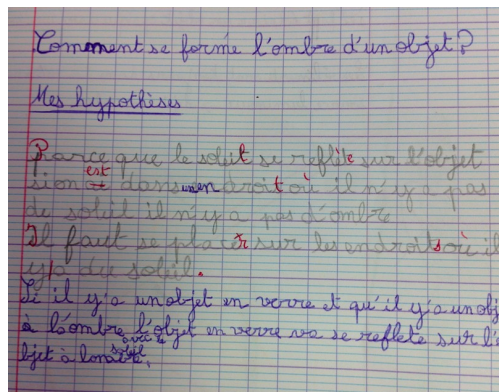 Comment se forme l'ombre d'un objet?
Mes hypothèses
Parce que le soleil se reflète sur l'objet
si on est dans un endroit où il n'y a pas
de soleil il n'y a pas d'ombre
Il faut se placer sur les endroits où il
y a du soleil.
Si il y'a un objet en verre et qu'il y'a un obj
à l'ombre l'objet en verre va se refleté sur l'o
bjet à l'ombre.
avec le
soleil